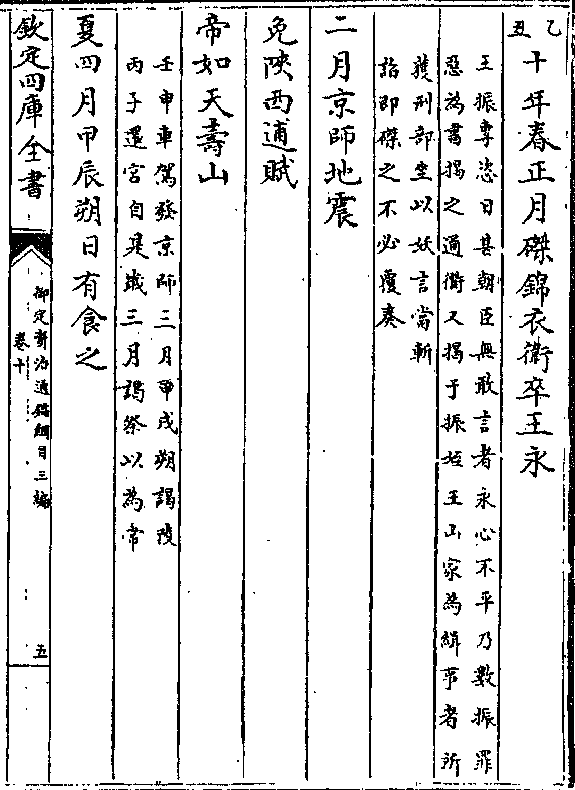 乙丑
十年春正月磔錦衣衛卒王永
王振專恣日甚朝臣無敢言者永心不平乃數振罪
惡為書揭之通衢又揭于振姪王山家為緝事者所
獲刑部坐以妖言當斬
詔即磔之不必覆奏
二月京師地震
免陝西逋賦
帝如天壽山
壬申車駕發京師三月甲戌朔謁陵
丙子還宮自是歲三月謁祭以為常
夏四月甲辰朔日有食之
欽定四庫全書
御定資治通鑑綱目三編
卷十
五